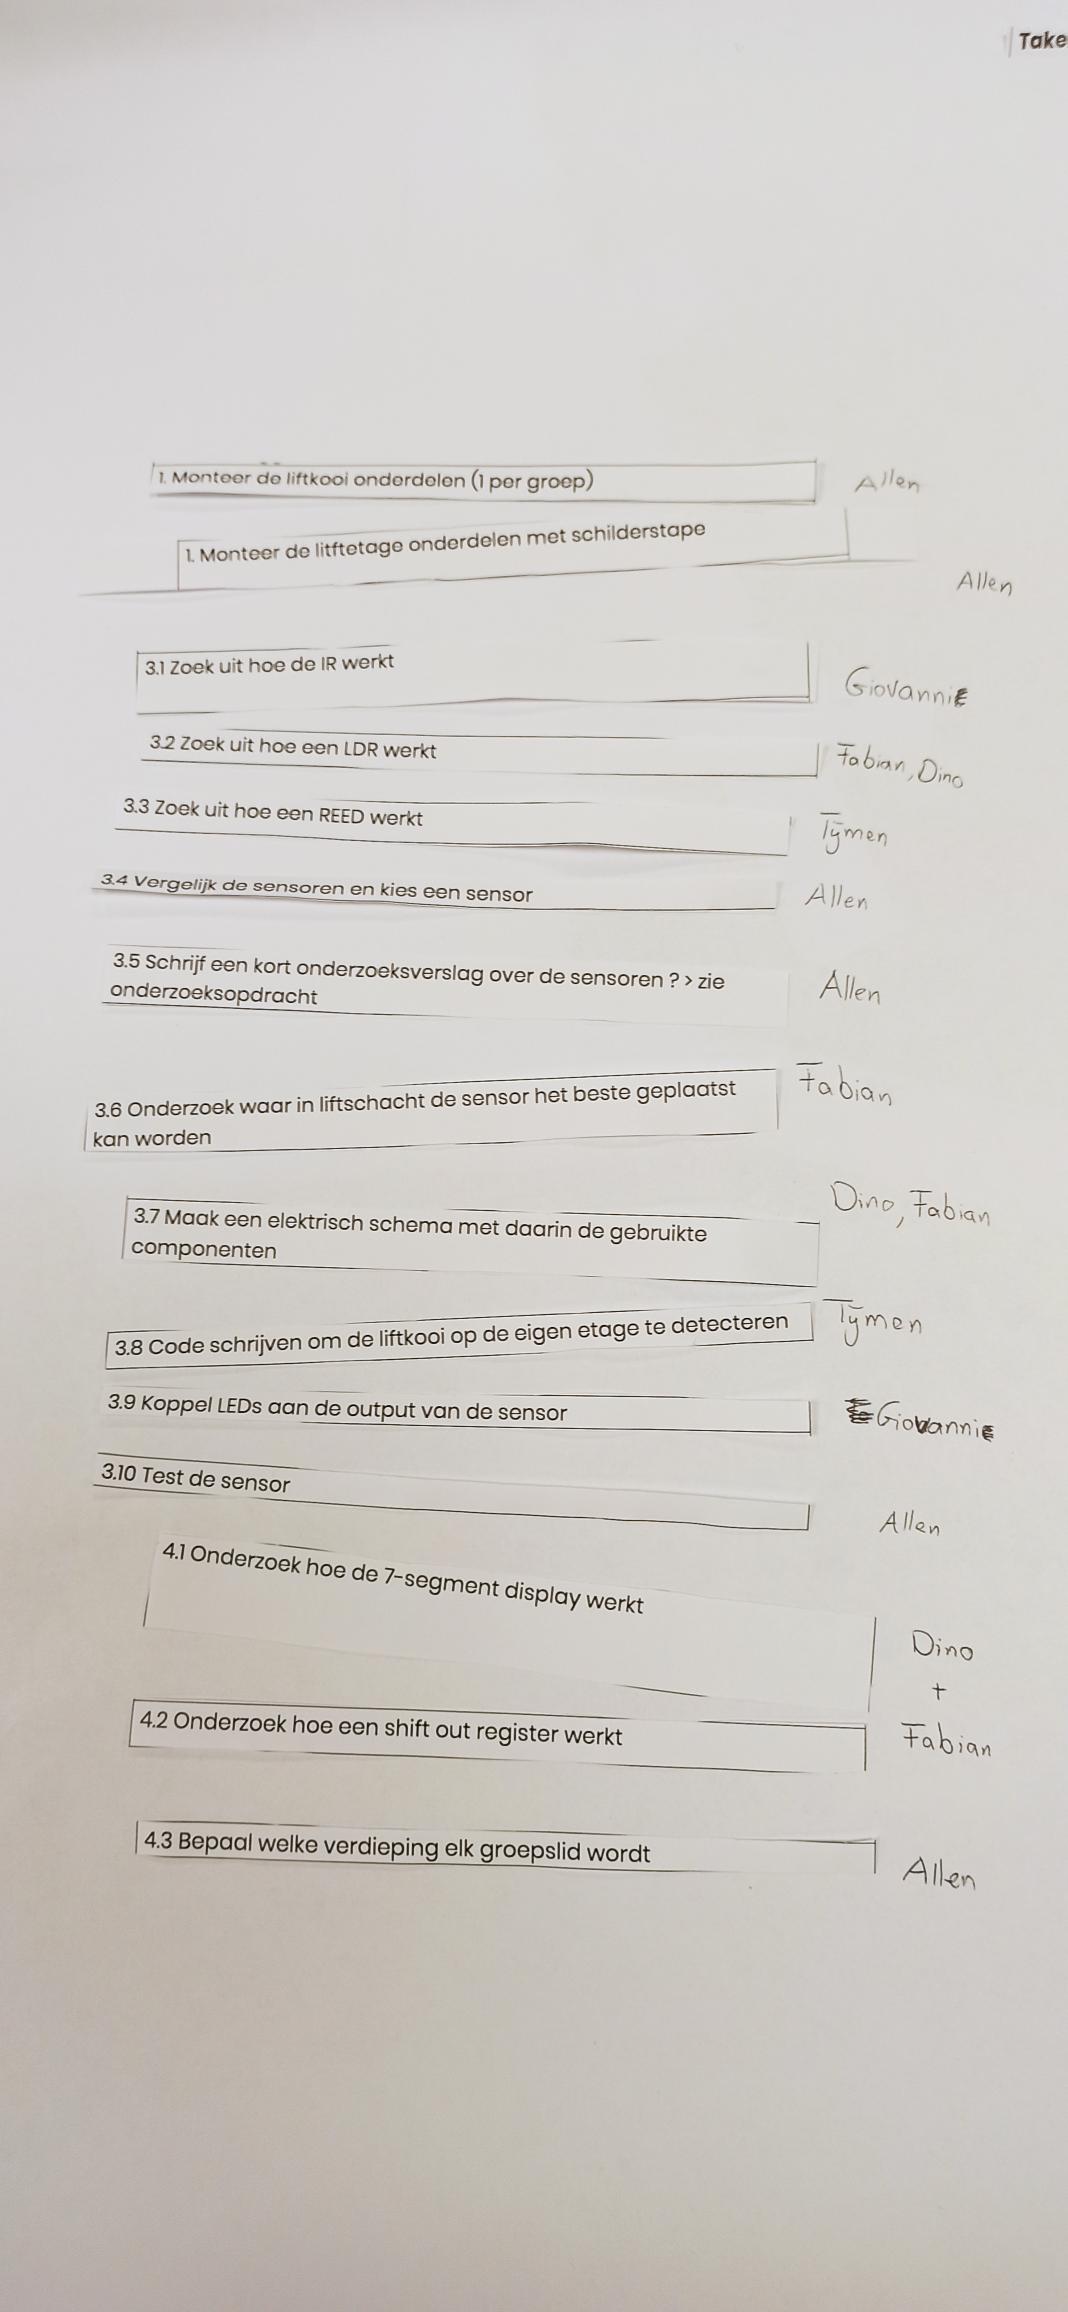 Take
1. Monteer de liftkooi onderdelen (1 per groep) Allen
1. Monteer de litftetage onderdelen met schilderstape
Allen
3.1 Zoek uit hoe de IR werkt Giovanni
3.2 Zoek uit hoe een LDR werkt Fabian, Dino
3.3 Zoek uit hoe een REED werkt Tijmen
3.4 Vergelijk de sensoren en kies een sensor Allen
3.5 Schrijf een kort onderzoeksverslag over de sensoren ? > zie
onderzoeksopdracht Allen
3.6 Onderzoek waar in liftschacht de sensor het beste geplaatst Fabian
kan worden
3.7 Maak een elektrisch schema met daarin de gebruikte Dino, Fabian
componenten
3.8 Code schrijven om de liftkooi op de eigen etage te detecteren Tijmen
3.9 Koppel LEDs aan de output van de sensor Giovanni
3.10 Test de sensor Allen
4.1 Onderzoek hoe de 7-segment display werkt
Dino
+
4.2 Onderzoek hoe een shift out register werkt Fabian
4.3 Bepaal welke verdieping elk groepslid wordt Allen